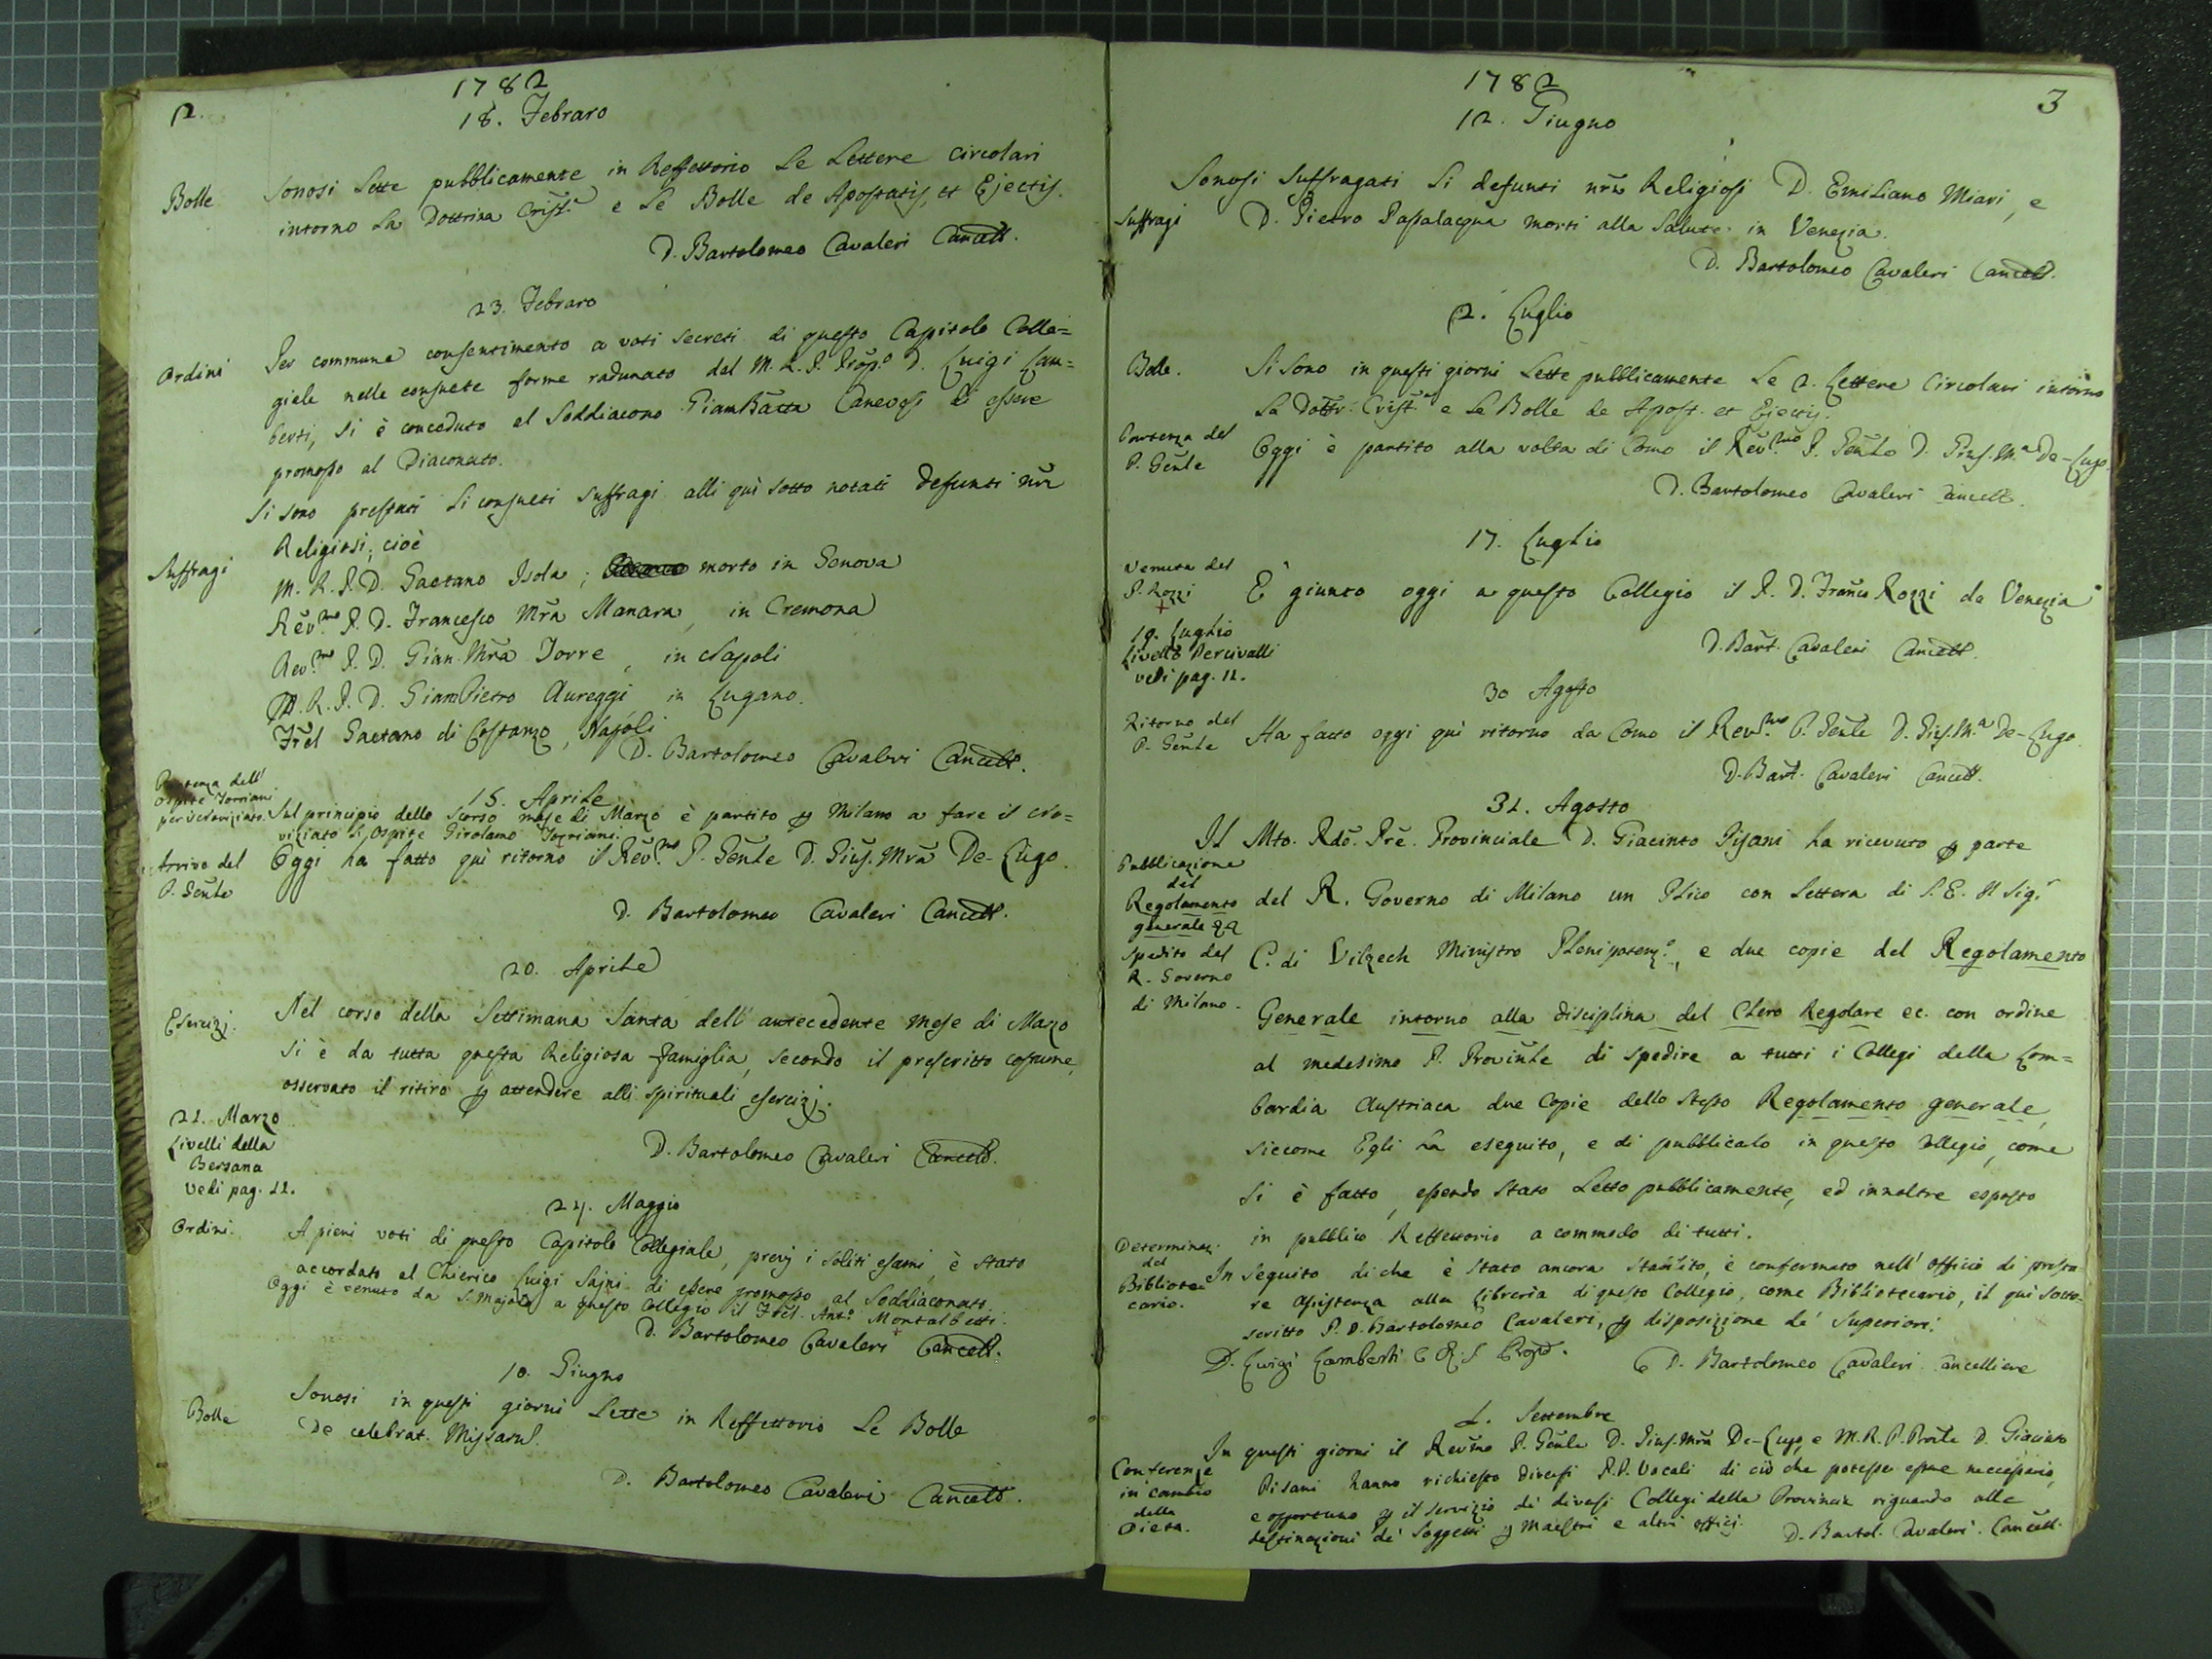 2.
1782
18. Febraro
Bolle
Sonosi Lette pubblicamente in Reffettorio Le Lettere Circolari
intorno La Dottrina Crist.ª e Le Bolle de Apostatis, et Ejectis.
D. Bartolomeo Cavaleri Cancell.
23. Febraro
Ordini
Per commune consentimento a voti secreti di questo Capitolo Colle=
giale nelle consuete forme radunato dal M. R. P. Prop.º D. Luigi Lam=
berti, si è conceduto al Soddiacono GiamBatta Canevosi di essere
promosso al Diaconato.
Si sono prestati Li consueti Suffragi alli quì sotto notati Defunti nri
Religiosi, cioè
Suffragi
M. R. P. D. Gaetano Isola, morto in Genova
Rev.mo P. D. Francesco Mra Manara, in Cremona
Rev.mo P. D. Gian Mra Torre, in Napoli
M. R. P. D. GiamPietro Aureggi in Lugano.
Frel Gaetano di Costanzo, Napoli
D. Bartolomeo Cavaleri Cancell.
Partenza dell'
Ospite Torriani
per il Noviziato.
15. Aprile
Sul principio dello scorso mese di Marzo è partito p Milano a fare il No=
viziato L'Ospite Girolamo Torriani.
Arrivo del
P. Gēnle
Oggi ha fatto quì ritorno il Rev.mo P. Gēnle D. Gius. Mra De-Lugo.
D. Bartolomeo Cavaleri Cancell.
20. Aprile
Esercizj.
Nel corso della Settimana Santa dell' antecedente Mese di Marzo
si è da tutta questa Religiosa famiglia, secondo il prescritto costume,
osservato il ritiro p attendere alli spirituali esercizj.
D. Bartolomeo Cavaleri Cancell.
21. Marzo
Livelli della
Bersana
Vedi pag. 11.
24. Maggio
Ordini.
A pieni voti di questo Capitolo Collegiale, previj i soliti esami, è stato
accordato al Chierico Luigi Sajni di essere promosso al Soddiaconato.
Oggi è venuto da S. Majolo a questo Collegio il Frel. Ant.º Montalbetti.
D. Bartolomeo Cavaleri Cancell.
10. Giugno
Bolle
Sonosi in questi giorni Lette in Reffettorio Le Bolle
De celebrat. Missarū.
D. Bartolomeo Cavaleri Cancell.
3
1782
12. Giugno
Suffragi
Sonosi Suffragati Li defunti nri Religiosi D. Emiliano Miari, e
D. Pietro Passalacqua morti alla Salute in Venezia.
D. Bartolomeo Cavaleri Cancell.
2. Luglio
Bolle.
Si sono in questi giorni Lette pubblicamente Le 2. Lettere Circolari intorno
La Dottr. Crist.ª e Le Bolle de Apost. et Ejectis.
Partenza del
P. Gēnle
Oggi è partito alla volta di Como il Rev.mo P. Gēnle D. Gius. M.ª De-Lugo.
D. Bartolomeo Cavaleri Cancell.
17. Luglio
Venuta del
P. Rozzi
È giunto oggi a questo Collegio il P. D. Franco Rozzi da Venezia
D. Bart. Cavaleri Cancell.
19. Luglio
Livello Percivalli
vedi pag. 11.
30 Agosto
Ritorno del
P. Gēnle
Ha fatto oggi quì ritorno da Como il Rev.mo P. Gēnle D. Gius. M.ª De-Lugo.
D. Bart. Cavaleri Cancell.
31. Agosto
Il Mto. Rdo. Pre. Provinciale D. Giacinto Pisani ha ricevuto p parte
Pubblicazione
del
Regolamento
generale
spedito dal
R. Governo
di Milano.
del R. Governo di Milano un Plico con Lettera di S. E. il Sig.r
C. di Vilzech Ministro Plenipotenz.º, e due copie del Regolamento
Generale intorno alla disciplina del Clero Regolare ec. con ordine
al medesimo P. Provinle di spedire a tutti i Collegi della Lom=
bardia Austriaca due Copie dello stesso Regolamento generale,
siccome Egli ha eseguito, e di pubblicarlo in questo Collegio, come
si è fatto, essendo stato Letto pubblicamente, ed inoltre esposto
in pubblico Reffettorio a commodo di tutti.
Determinaz.
del
Bibliote=
cario.
In seguito di che è stato ancora stabilito, e confermato nell' Officio di presta
re assistenza alla Libreria di questo Collegio, come Bibliotecario, il quì sotto=
scritto P. D. Bartolomeo Cavaleri, p disposizione de' Superiori.
D. Luigi Lamberti C. R. S. Propto.
D. Bartolomeo Cavaleri Cancelliere
1. Settembre
Conferenze
in cambio
della
Dieta.
In questi giorni il Reṽmo P. Gēnle D. Gius. Mra De-Lugo, e M. R. P. Prõle D. Giacinto
Pisani hanno richiesto diversi P.P. Vocali di ciò che potesse essere necessario,
e opportuno p il servizio de' diversi Collegi della Provincia riguardo alle
destinazioni de' Soggetti p Maestri e altri officj. D. Bartol. Cavaleri. Cancell.